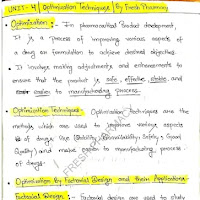 UNIT-4 | Optimization Techniques | By Fresh Pharmacy
Optimization :- In pharmaceutical Product development,
It is a process of improving various aspects of
a drug or formulation to achieve desired objectives.
It involves making adjustments and enhancements to
ensure that the product is safe, effective, stable and
easier to manufacturing process.
Optimization Techniques :- Optimization Techniques are the
methods which are used to improve various aspects
of drugs like (Stability, Bioavailability, Safety, & Good
Quality) and make easier to manufacturing process
of drugs.
Optimization by Factorial Design and their Applications
Factorial Design :- Factorial design are used to study